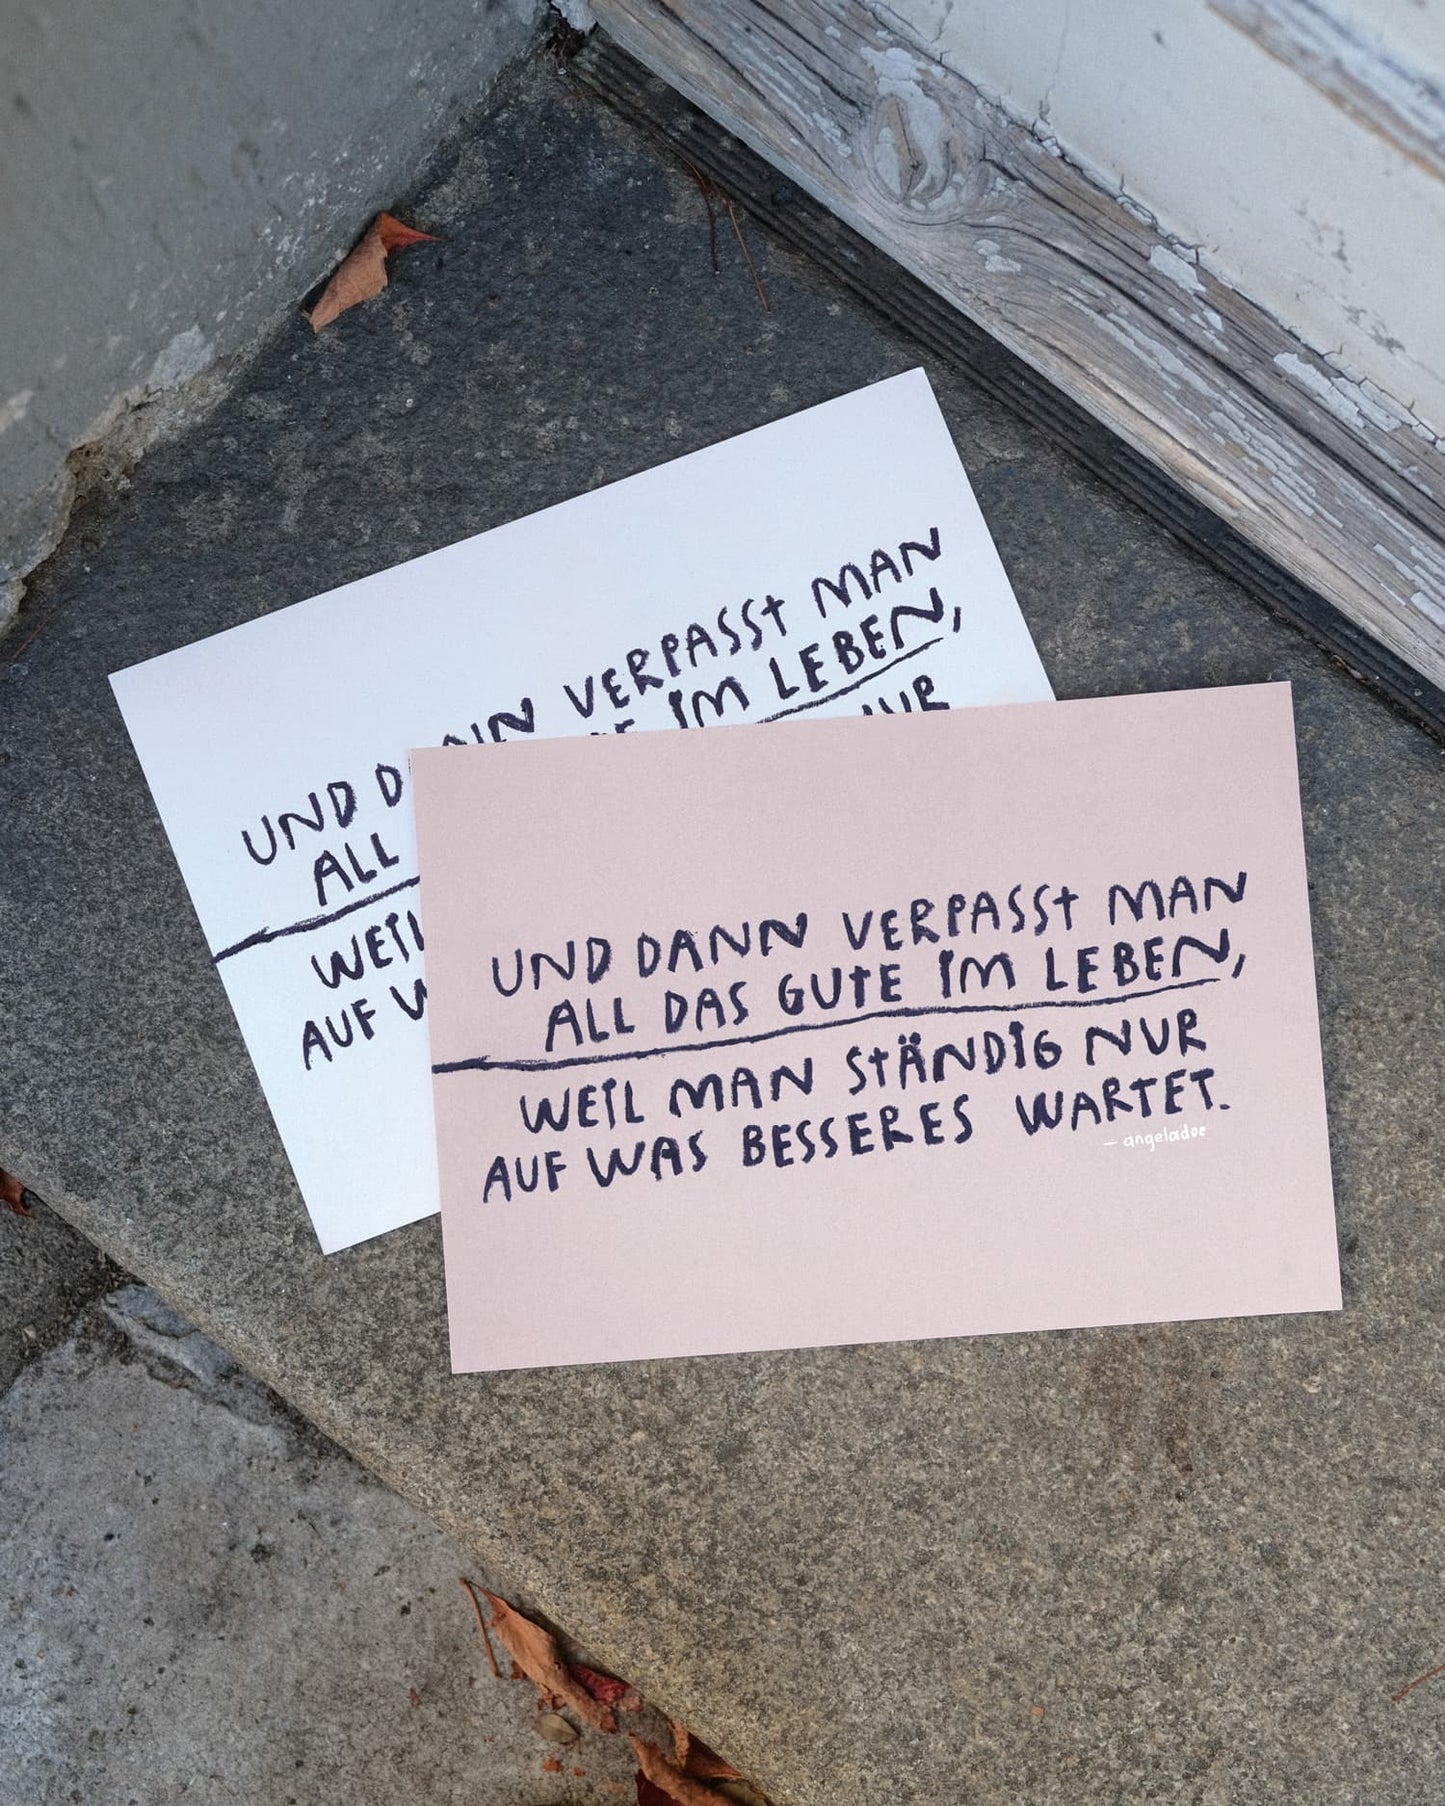 UND D NN VERPASST MAN
ALL IM LEBEN,
NUR
WEIL
AUF W
UND DANN VERPASST MAN
ALL DAS GUTE IM LEBEN,
WEIL MAN STÄNDIG NUR
AUF WAS BESSERES WARTET.
– angeladoe